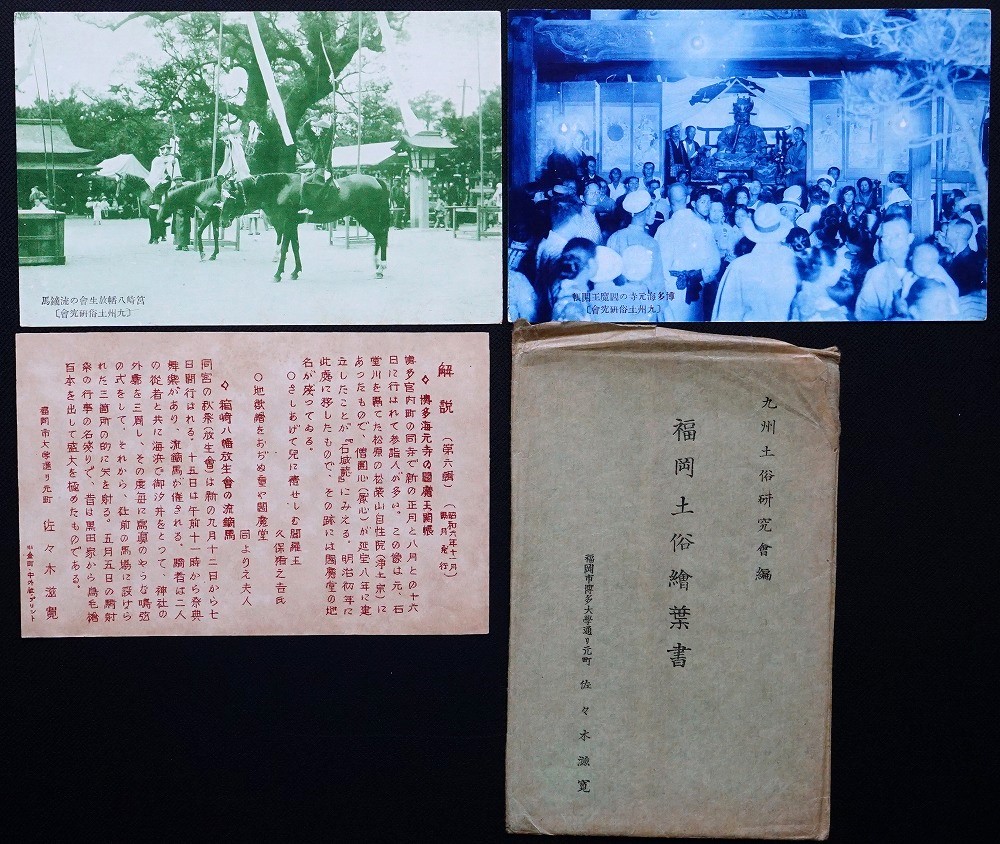 筥崎八幡放生會の流鏑馬
〔九州土俗研究會〕
博多海元寺の閻魔王開帳
〔九州土俗研究會〕
解説 (第六輯) (昭和六年十一月 発行)
◇博多海元寺の閻魔王開帳
博多官内町の同寺で新の正月と八月との十六
日に行はれて参詣人が多い。この像は元、石
堂川を隔てた松原の松葉山自性院(浄土宗)に
あったもので、僧圓心(廓心)が延宝八年に建
立したことが『石城志』にみえる。明治初年に
此處に移したもので、その跡には閻魔堂の地
名が残つてゐる。
○さしあげて兒に痞せしむ閻羅王
久保猪之吉氏
○地獄繪をおぢぬ童や閻魔堂
同よりえ夫人
◇筥崎八幡放生會の流鏑馬
同宮の秋祭(放生會)は新の九月十二日から七
日間行はれる。十五日は午前十一時から祭典
舞楽があり、流鏑馬が催される。騎者は二人
の従者と共に海浜で御汐井をとつて、神社の
外廓を三周し、その度毎に寫眞のやうな鳴弦
の式をして、それから、社前の馬場に設けら
れた三箇所の的に矢を射る。五月五日の騎射
祭の行事の名残りで、昔は黒田家から鳥毛槍
百本を出して盛大を極めたものである。
福岡市大学通り元町 佐々木滋寛
九州土俗研究會編
福岡土俗繪葉書
福岡市博多大學通り元町 佐々木滋寛